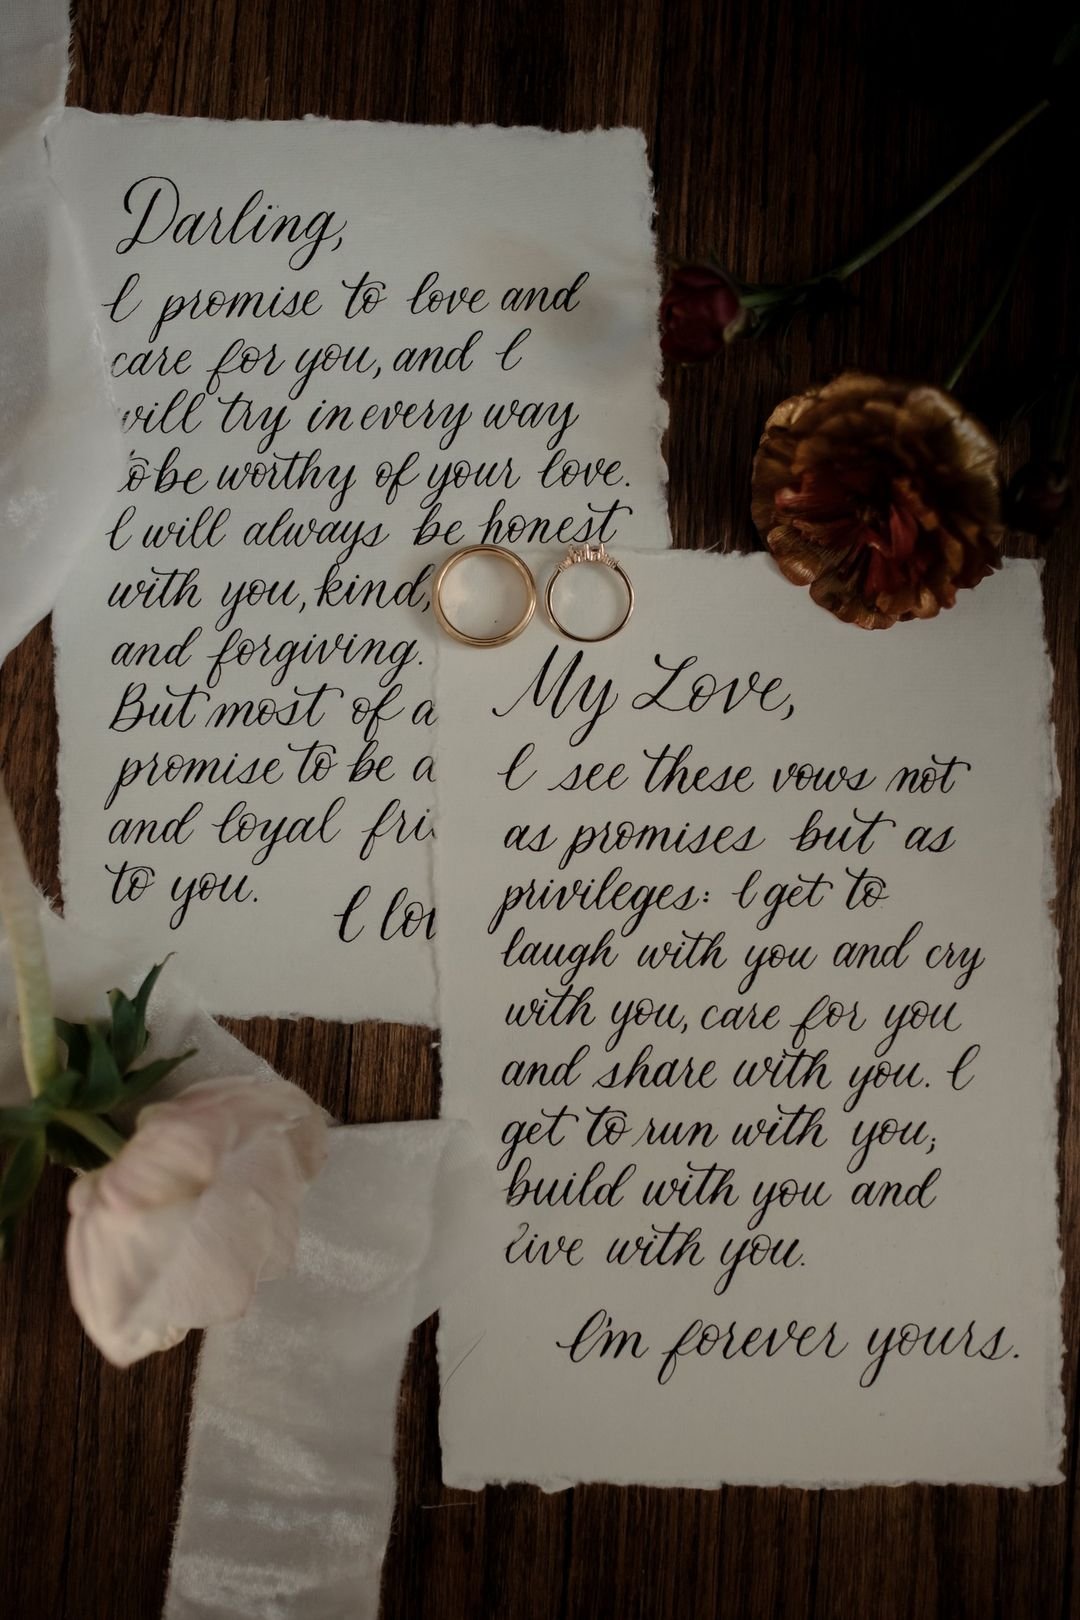 Darling,
I promise to love and
care for you, and I
will try in every way
to be worthy of your love.
I will always be honest
with you, kind,
and forgiving.
But most of a
promise to be a
and loyal fri
to you.
I lo
My Love,
I see these vows not
as promises but as
privileges: I get to
laugh with you and cry
with you, care for you
and share with you. I
get to run with you;
build with you and
live with you.
I'm forever yours.